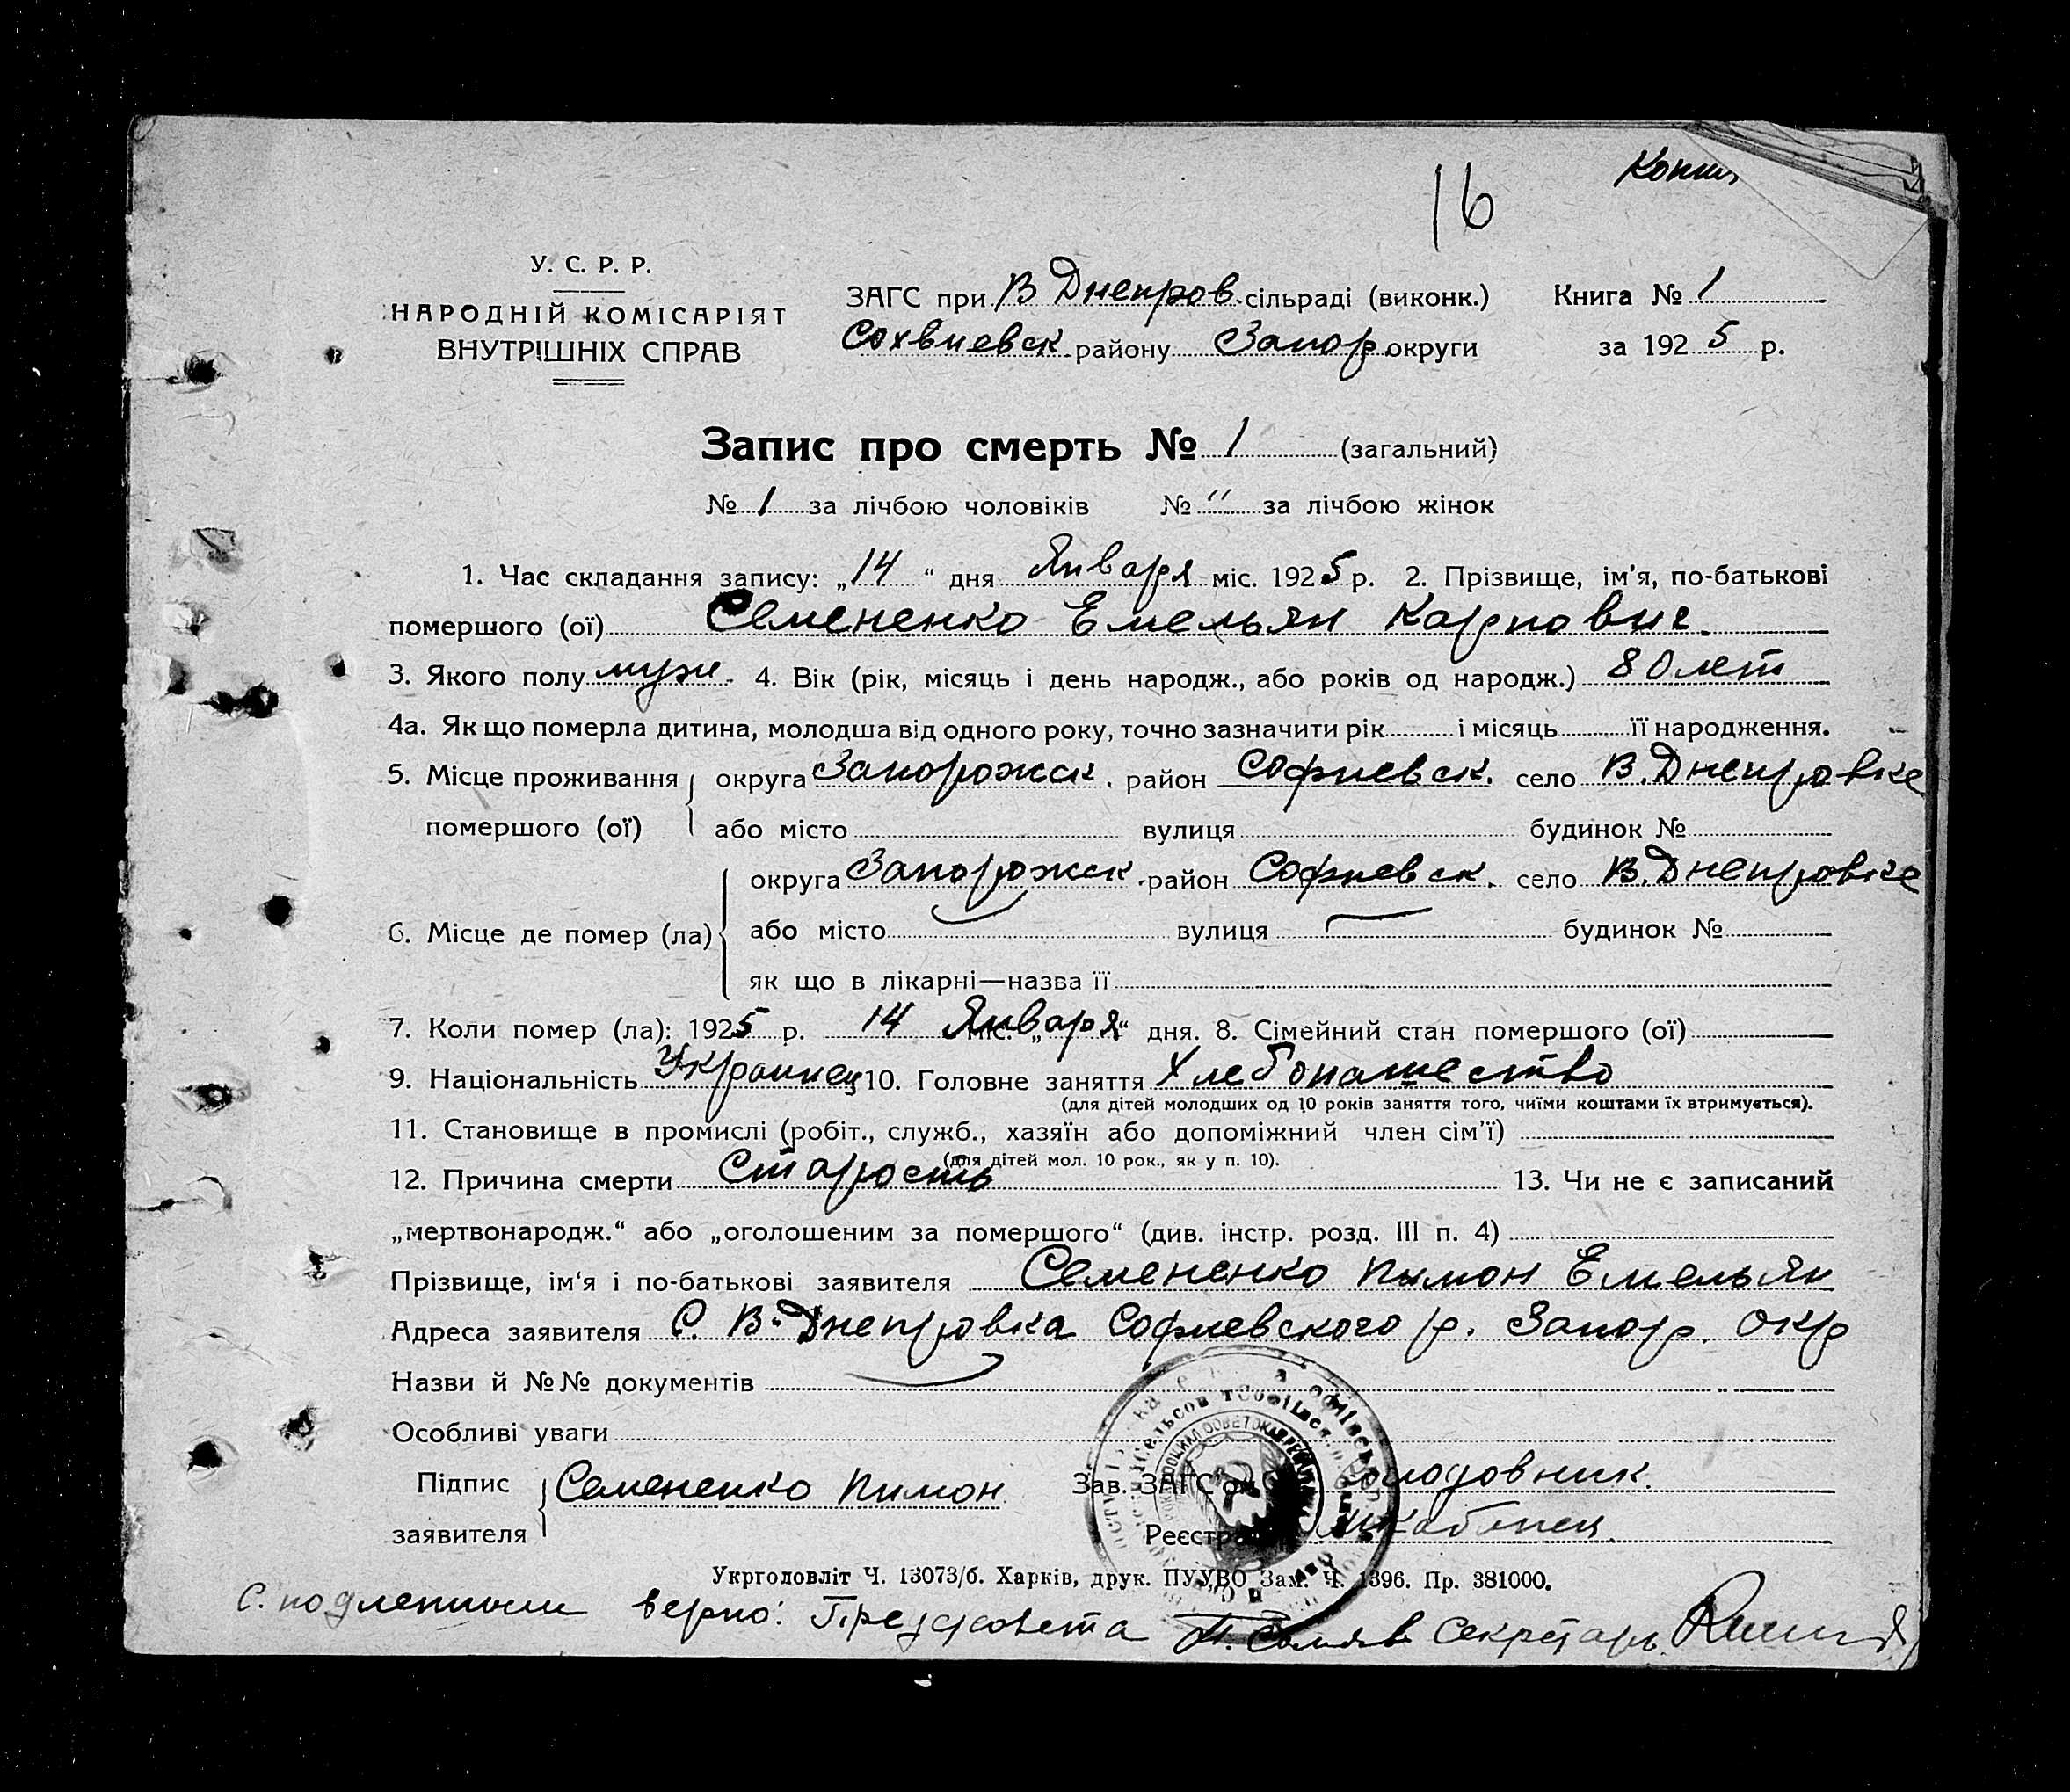 Копия
16
У. С. Р. Р.
НАРОДНІЙ КОМІСАРІЯТ
ВНУТРІШНІХ СПРАВ
ЗАГС при В Днепров. сільраді (виконк.) Книга № 1
Сохвиевск. району Запор. округи за 1925 р.
Запис про смерть № 1 (загальний)
№ 1 за лічбою чоловіків № " за лічбою жінок
1. Час складання запису: „14“ дня Января міс. 1925 р. 2. Прізвище, ім'я, по-батькові
помершого (ої) Семененко Емельян Карпович.
3. Якого полу муж. 4. Вік (рік, місяць і день народж., або років од народж.) 80 лет
4а. Як що померла дитина, молодша від одного року, точно зазначити рік і місяць її народження.
5. Місце проживання округа Запорожск. район Софиевск. село В. Днепровке
помершого (ої) або місто вулиця будинок №
округа Запорожск. район Софиевск. село В. Днепровке
6. Місце де помер (ла) або місто вулиця будинок №
як що в лікарні—назва її
7. Коли помер (ла): 1925 р. 14 Января міс. „ “ дня. 8. Сімейний стан помершого (ої)
9. Національність Украинец 10. Головне заняття Хлебопашество
(для дітей молодших од 10 років заняття того, чиїми коштами їх втримується).
11. Становище в промислі (робіт., служб., хазяїн або допоміжний член сім'ї)
(для дітей мол. 10 рок., як у п. 10).
12. Причина смерти Старость 13. Чи не є записаний
„мертвонародж.“ або „оголошеним за помершого“ (див. інстр. розд. III п. 4)
Прізвище, ім'я і по-батькові заявителя Семененко Пимон Емельян
Адреса заявителя С. В. Днепровка Софиевского р. Запор. окр
Назви й №№ документів
Особливі уваги
Підпис Семененко Пимон Зав. ЗАГС'ом
заявителя Реєстра
Укрголовліт Ч. 13073/б. Харків, друк. ПУУВО Зам. Ч. 1396. Пр. 381000.
С. подленным верно: Предсовета Секретарь